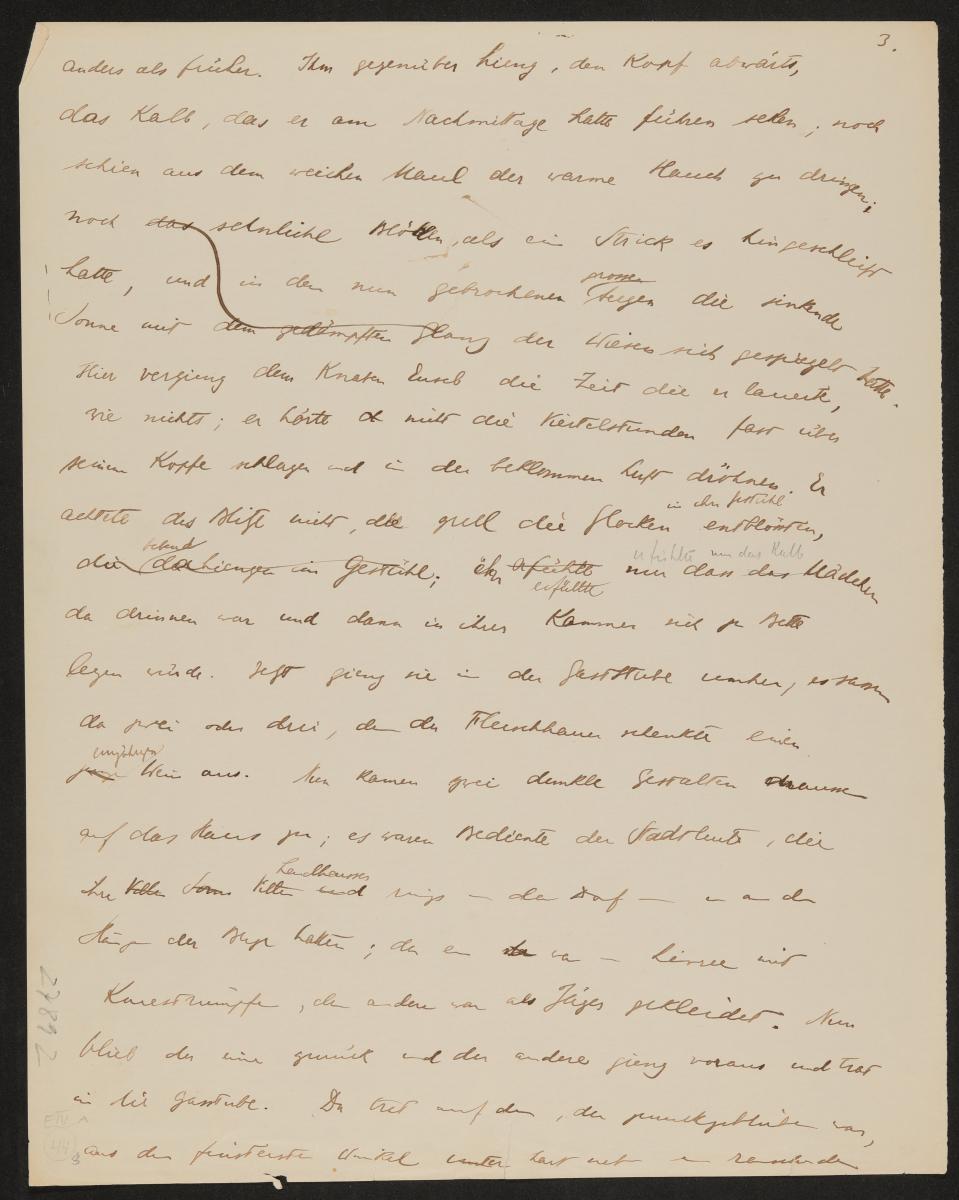 3.
anders als früher. Ihm gegenüber hieng, den Kopf abwärts,
das Kalb, das er am Nachmittage hatte führen sehen; noch
schien aus dem weichen Maul der warme Hauch zu dringen;
noch das sehnliche Blöken, als ein Strick es hingeschleift
grossen
hatte, und in den nun gebrochenen Augen die sinkende
Sonne mit dem gedämpften Glanz der Wiesen sich gespiegelt hatte.
Hier vergieng dem Knaben Euseb die Zeit die er lauerte,
wie nichts; er hörte nicht die Viertelstunden fast über
seinem Kopfe schlagen und in der beklommen Luft dröhnen. Er
in ihr Gestühl
achtete des Blitze nicht, die grell die Glocken entblössten,
er fühlte nur das Kalb
die da hiengen im Gestühl; er fühlte nur dass das Mädchen
erfüllte
da drinnen war und dann in ihrer Kammer sich zu Bette
legen würde. Jetzt gieng sie in der Gaststube umher, es sassen
da zwei oder drei, denn der Fleischhauer schenkte einen
Wein aus. Nun kamen zwei dunkle Gestalten draussen
auf das Haus zu; es waren Bediente der Stadtleute, die
Landhäuser
ihre Villen und rings um das Dorf
der Berge hatten; der eine war in Livree mit
Kniestrümpfen, der andere war als Jäger gekleidet. Nun
blieb der eine zurück und der andere gieng voraus und trat
in die Gaststube. Da trat auf den, der zurückgeblieben war,
aus dem finstersten Winkel hart neben
2784 2
E IV A